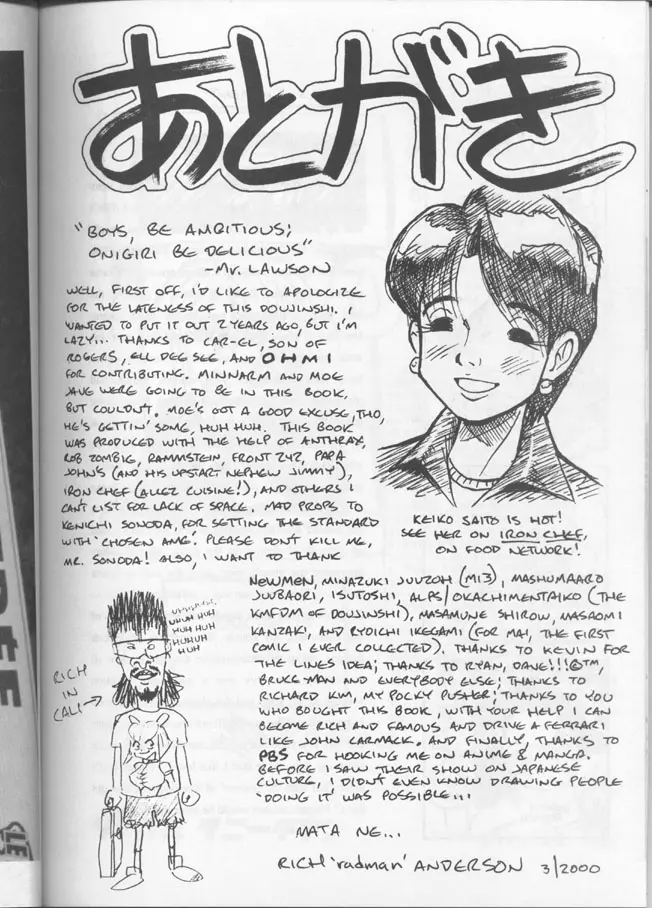 あとがき
"BOYS, BE AMBITIOUS;
ONIGIRI BE DELICIOUS"
-MR. LAWSON
WELL, FIRST OFF, I'D LIKE TO APOLOGIZE
FOR THE LATENESS OF THIS DOUJINSHI. I
WANTED TO PUT IT OUT 2 YEARS AGO, BUT I'M
LAZY... THANKS TO CAR-EL, SON OF
ROGERS, ELL DEE SEE, AND OHMI
FOR CONTRIBUTING. MINNARM AND MOE
JAVE WERE GOING TO BE IN THIS BOOK,
BUT COULDN'T. MOE'S GOT A GOOD EXCUSE, THO,
HE'S GETTIN' SOME, HUH HUH. THIS BOOK
WAS PRODUCED WITH THE HELP OF ANTHRAX,
ROB ZOMBIE, RAMMSTEIN, FRONT 242, PAPA
JOHN'S (AND HIS UPSTART NEPHEW JIMMY),
IRON CHEF (ALLEZ CUISINE!), AND OTHERS I
CAN'T LIST FOR LACK OF SPACE. MAD PROPS TO
KENICHI SONODA, FOR SETTING THE STANDARD
WITH 'CHOSEN AME'. PLEASE DON'T KILL ME,
MR. SONODA! ALSO, I WANT TO THANK
KEIKO SAITO IS HOT!
SEE HER ON IRON CHEF,
ON FOOD NETWORK!
NEWMEN, MINAZUKI JUUZOH (M13), MASHUMAARO
JUUBAORI, ISUTOSHI, ALPS/OKACHIMENTAIKO (THE
KMFDM OF DOUJINSHI), MASAMUNE SHIROW, MASAOMI
KANZAKI, AND RYOICHI IKEGAMI (FOR MAI, THE FIRST
COMIC I EVER COLLECTED). THANKS TO KEVIN FOR
THE LINES IDEA; THANKS TO RYAN, DAVE!!!®™,
BRUCE-MAN AND EVERYBODY ELSE; THANKS TO
RICHARD KIM, MY POCKY PUSHER; THANKS TO YOU
WHO BOUGHT THIS BOOK, WITH YOUR HELP I CAN
BECOME RICH AND FAMOUS AND DRIVE A FERRARI
LIKE JOHN CARMACK. AND FINALLY, THANKS TO
PBS FOR HOOKING ME ON ANIME & MANGA.
BEFORE I SAW THEIR SHOW ON JAPANESE
CULTURE, I DIDN'T EVEN KNOW DRAWING PEOPLE
'DOING IT' WAS POSSIBLE...
UHUH HUH
HUH HUH
HUHUH
HUH
RICH
IN
CALI
MATA NE...
RICH 'radman' ANDERSON 3/2000